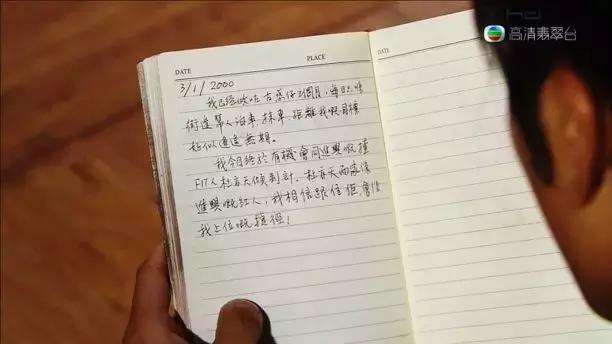 高清翡翠台
DATE
PLACE
DATE
3/1/2000
我已經做咗古惑仔2個月,每日都喺
街邊幫人泊車、抹車,距離我嘅目標
好似遙遙無期。
我今日終於有機會同進興嘅揸
FIT人杜亦天傾計,杜亦天而家係
進興嘅紅人,我相信跟住佢,會係
我上位嘅捷徑!